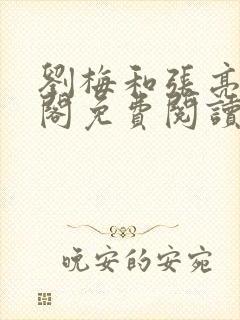 劉梅和張亮
閣免費閱讀
晚安的安宛